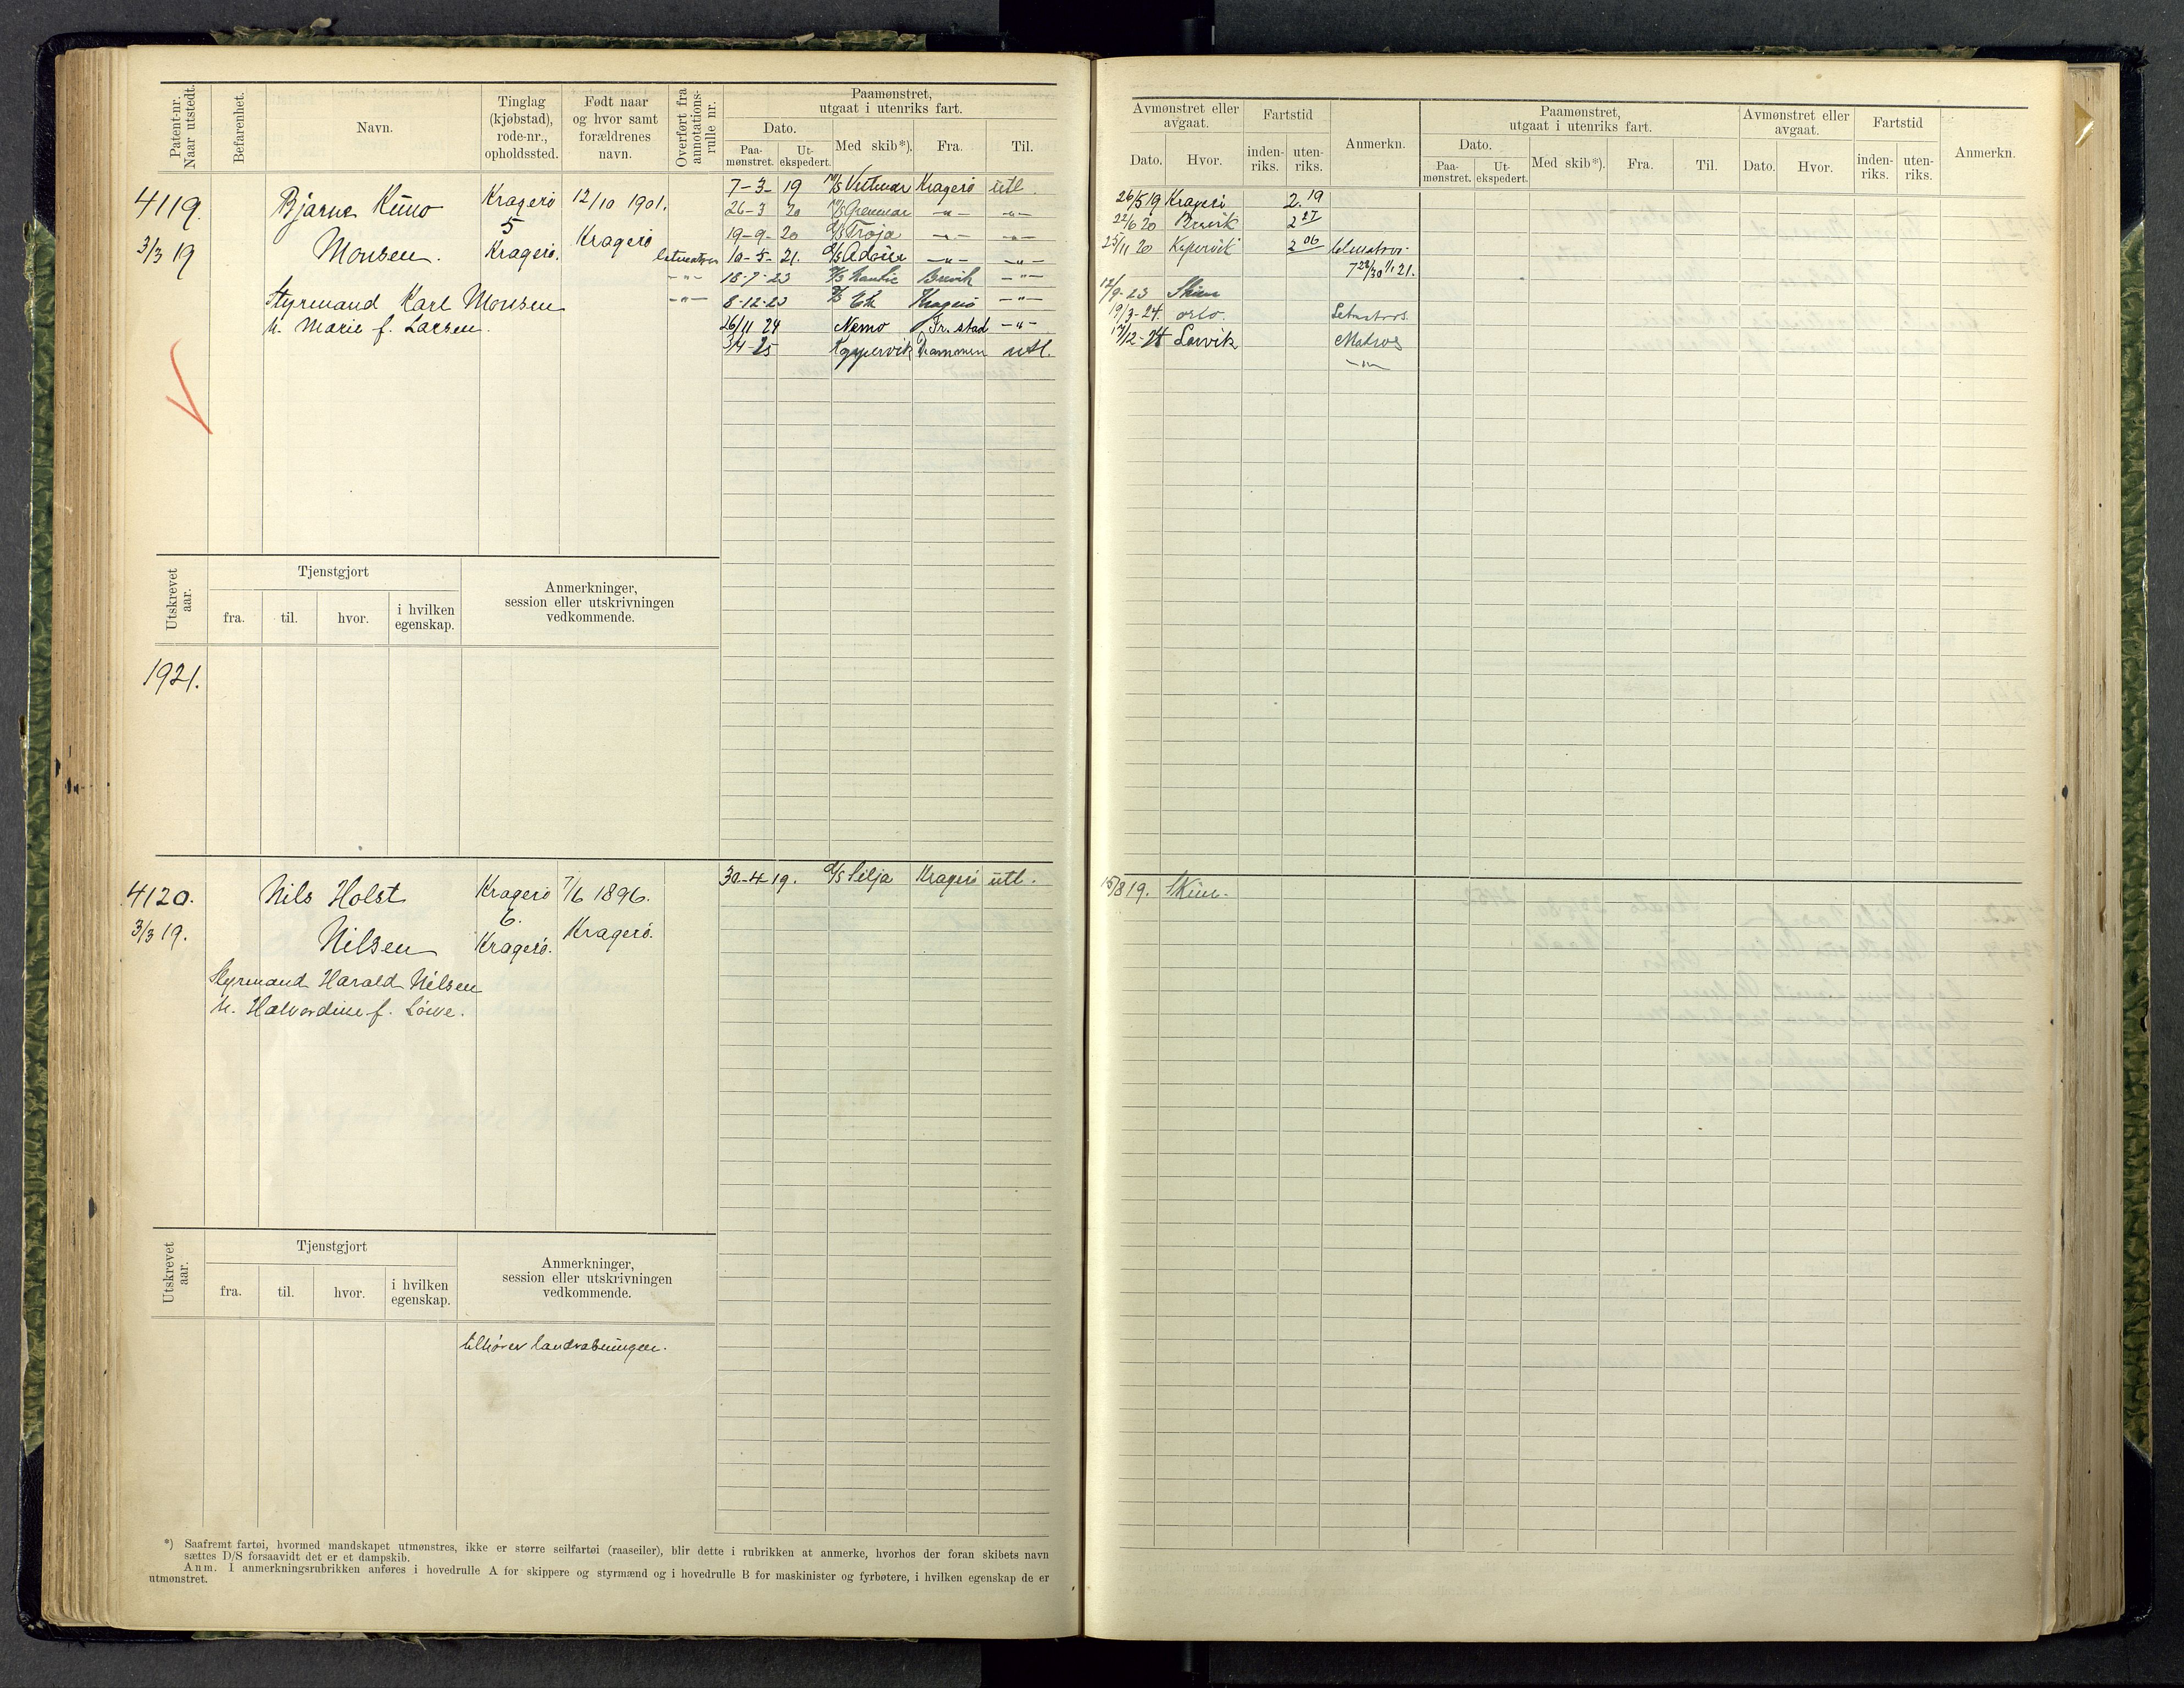 Patent-nr. Naar utstedt.
Befarenhet.
Navn.
Tinglag (kjøbstad), rode-nr., opholdssted.
Født naar og hvor samt forældrenes navn.
Overført fra annotations-rulle nr.
Paamønstret, utgaat i utenriks fart.
Dato.
Paa-mønstret.
Ut-ekspedert.
Med skib*).
Fra.
Til.
Avmønstret eller avgaat.
Dato.
Hvor.
Fartstid
inden-riks.
uten-riks.
Anmerkn.
Paamønstret, utgaat i utenriks fart.
Dato.
Paa-mønstret.
Ut-ekspedert.
Med skib*).
Fra.
Til.
Avmønstret eller avgaat.
Dato.
Hvor.
Fartstid
inden-riks.
uten-riks.
Anmerkn.
4119.
3/3 19
Bjarne Kuno
Monsen.
Styrmand Karl Monsen
u. Marie f. Larsen.
Kragerø
5
Kragerø.
12/10 1901.
Kragerø
7-3-19 Kragerø utl.
26-3 20 -"- -"-
19-9-20 D/S Troja -"- -"-
10-5-21. -"- -"-
18-7-23 Brevik -"-
8-12-23 Kragerø -"-
26/11 24 Nemo Fr.stad -"-
3/4-25 Koppervik Drammen utl.
26/5 19 Kragerø 2.19
22/6 20 Brevik 2 27
25/11 20 Kopervik 2 06
12/9-23 Skien
19/3-24. Oslo. Letmatros.
17/12-24 Larvik Matros
-"-
Utskrevet aar.
Tjenstgjort
fra.
til.
hvor.
i hvilken egenskap.
Anmerkninger, session eller utskrivningen vedkommende.
1921.
4120.
3/3 19.
Nils Holst
Nilsen
Styrmand Harald Nilsen
u. Halvordine f.
Kragerø
6.
Kragerø.
7/6 1896.
Kragerø.
30-4-19. D/S Silja Kragerø utl.
15/8 19. Skien.
Utskrevet aar.
Tjenstgjort
fra.
til.
hvor.
i hvilken egenskap.
Anmerkninger, session eller utskrivningen vedkommende.
tilhører
*) Saafremt fartøi, hvormed mandskapet utmønstres, ikke er større seilfartøi (raaseiler), blir dette i rubrikken at anmerke, hvorhos der foran skibets navn
sættes D/S forsaavidt det er et dampskib.
Anm. I anmerkningsrubrikken anføres i hovedrulle A for skippere og styrmænd og i hovedrulle B for maskinister og fyrbøtere, i hvilken egenskap de er
utmønstret.